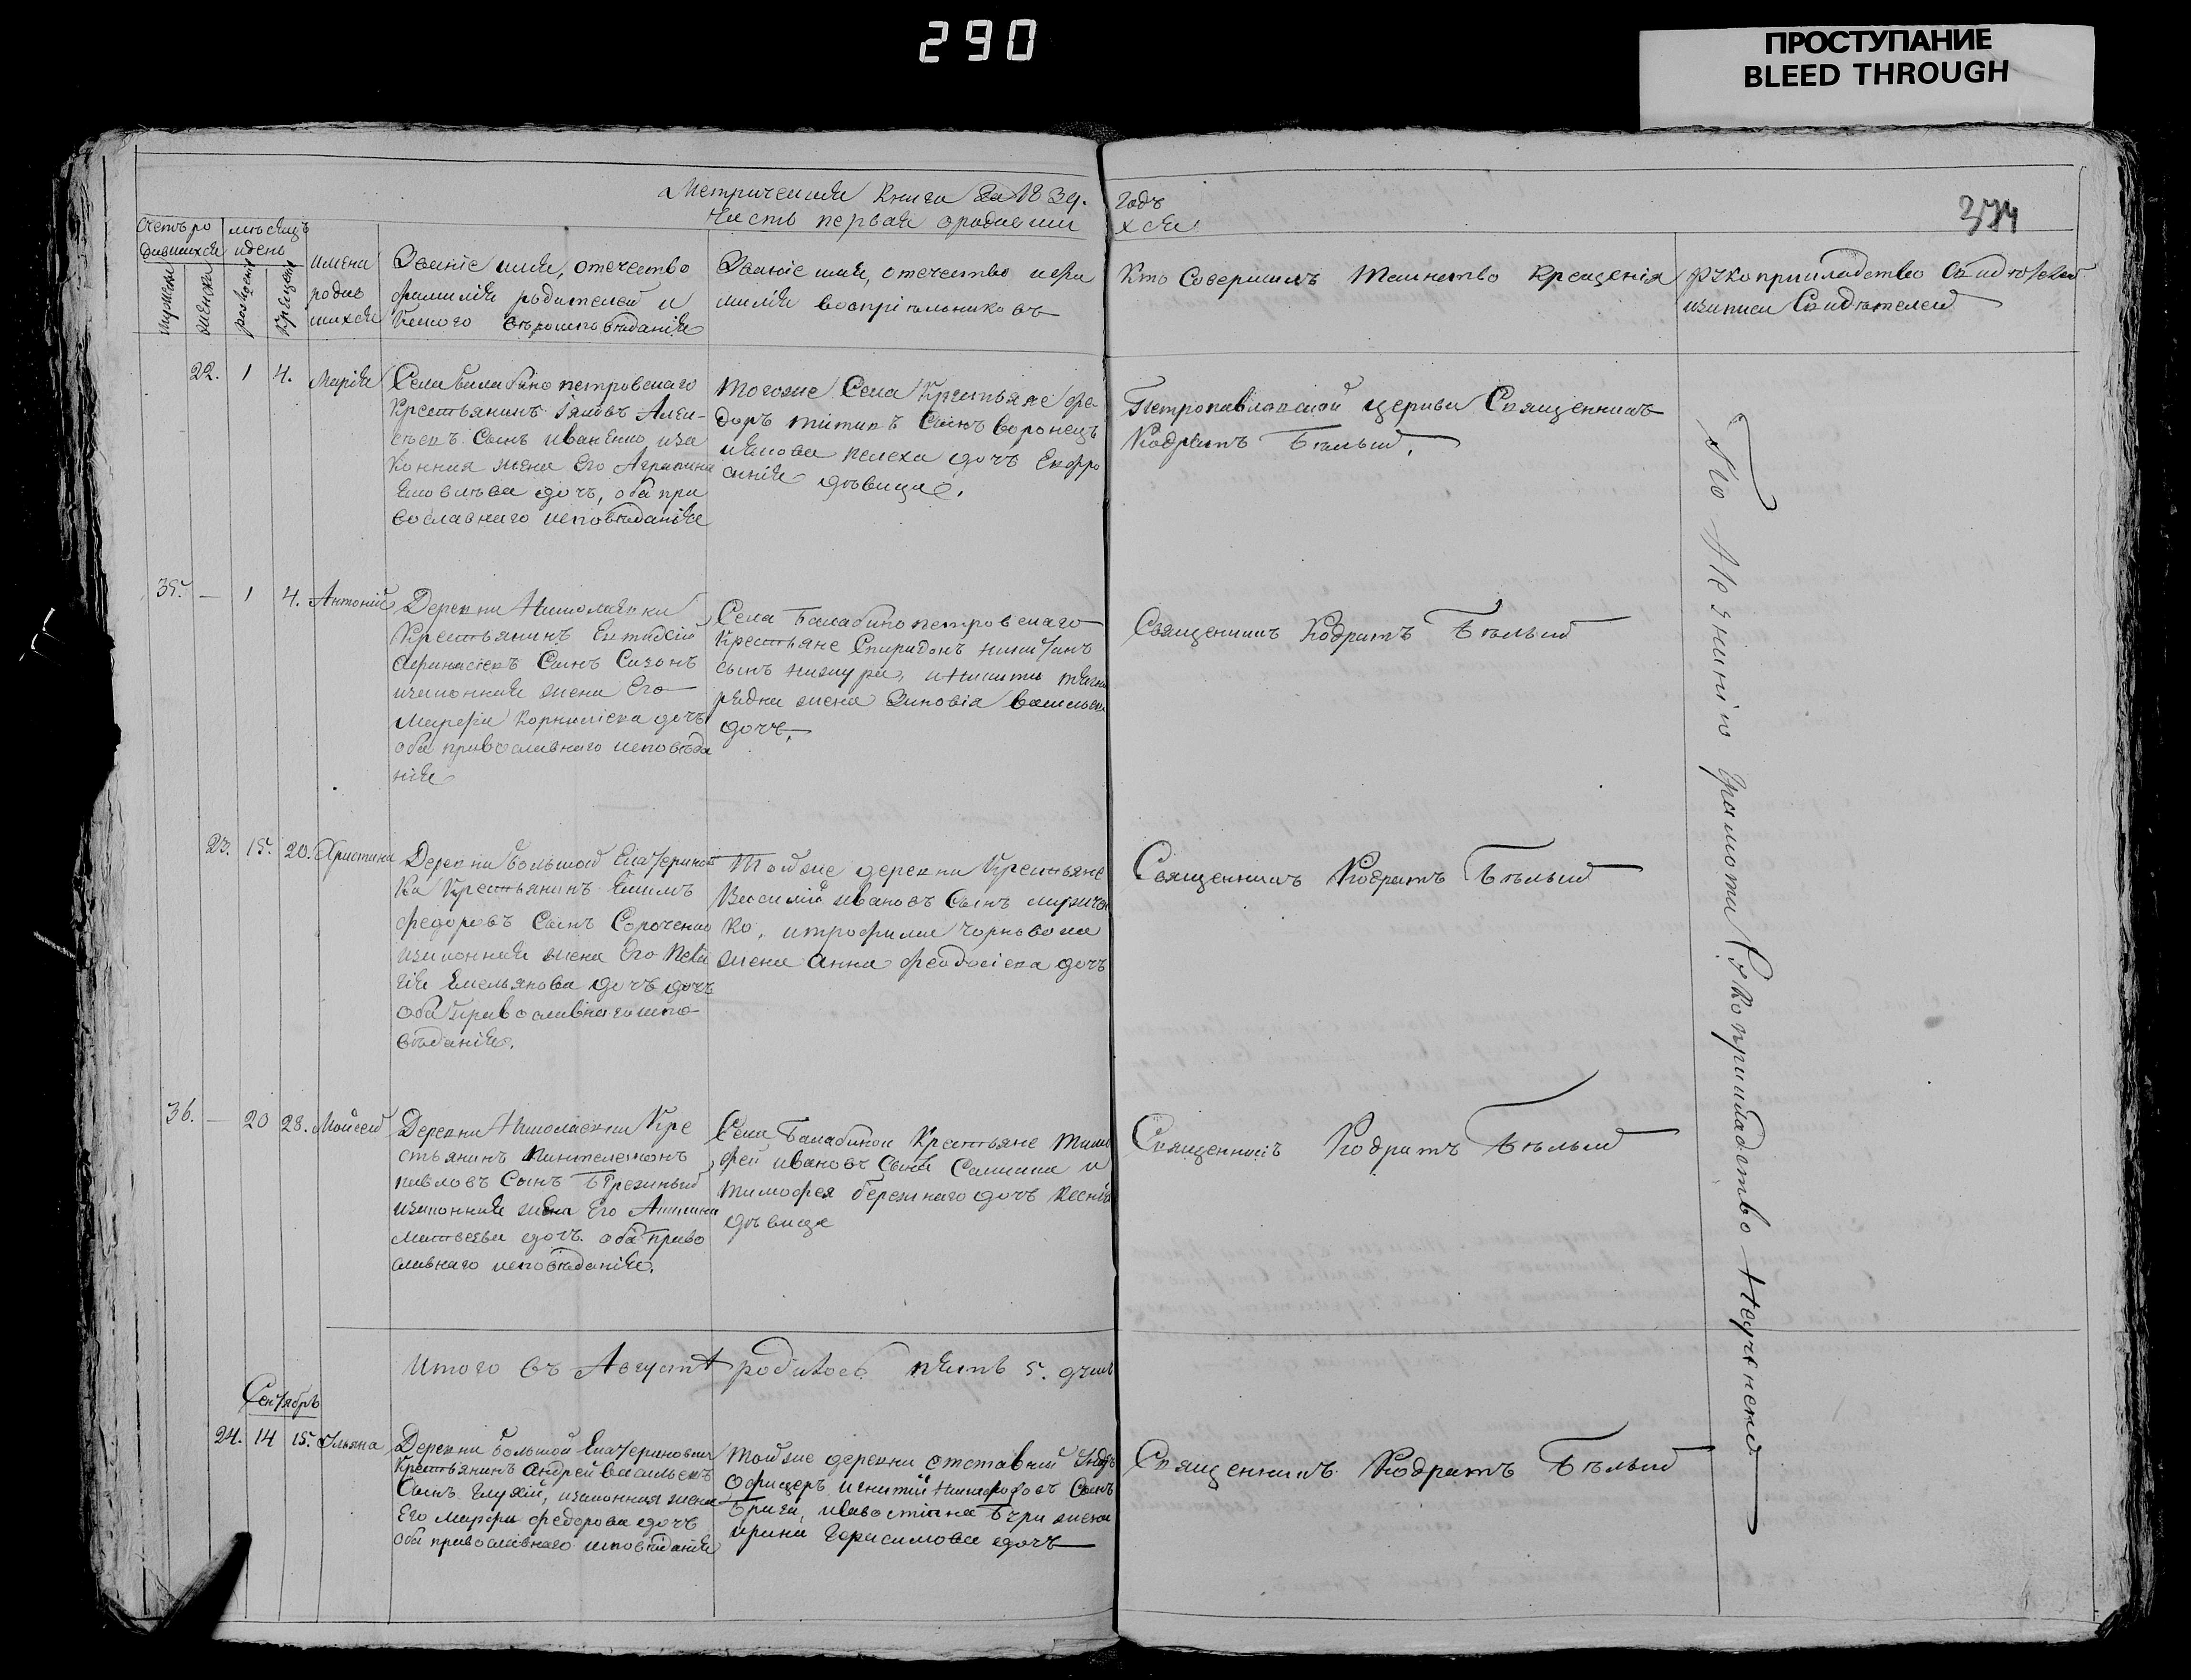 290
ПРОСТУПАНИЕ
BLEED THROUGH
Метрическая книга за 1839. годъ
Часть первая о родившихся
374
Счетъ ро
дившихся
мѣсяцъ
и день
мужеска
женска
рожденія
крещенія
имена
родив
шихся
Званіе имя, отечество
фамилія родителей и
какого вѣроисповѣданія
Званіе имя, отечество и фа
милія воспріемниковъ
Кто совершилъ таинство крещенія
Рукоприкладство свидѣтелей
записи свидѣтелей
22. 1 4. Марія
Села Балабино петровскаго
Крестьянинъ Іяковъ Алек-
сѣевъ сынъ Иваненко, иза
конная жена его Агрипина
Яковлева дочь, оба пра
вославнаго исповѣданія
Тогоже Села Крестьяне фе
доръ титовъ сынъ воронецъ
и Якова пелеха дочь Евфро
синія дѣвица.
Петропавловской церкви Священникъ
Кодратъ Бѣлый.
35. — 1 4. Антоній
Деревни Николаевки
Крестьянинъ Евтихій
Афанасіевъ Сынъ Сизонъ
изаконная жена его
Марфа Корниліева дочь
оба православнаго исповѣда
нія
Села Балабино петровскаго
Крестьяне Спиридонъ
дочь.
Священникъ Кодратъ Бѣлый
23. 15. 20. Христина
Деревни большой Екатеринов
ка Крестьянинъ Якимъ
федоровъ Сынъ Сороченко
изаконная жена его Пела
гія Емельянова дочь дочь
оба православнаго испо-
вѣданія.
Тойже деревни Крестьяне
Василій Ивановъ Сынъ
ко, итрофима Чорновола
жена Анна феодосіева дочь
Священникъ Кодратъ Бѣлый
36. — 20 28. Мойсей
Деревни Николаевки Кре
стьянинъ Пантелемонъ
павловъ Сынъ
изаконная жена его Акилина
Матвеева дочь. оба право
славнаго исповѣданія.
Села Балабинои Крестьяне Тимо
фей Ивановъ Сынъ и
тимофея бережнаго дочь Ксенія
дѣвица
Священникъ Кодратъ Бѣлый
Итого въ Августѣ родилось пять 5. душъ
Сентябрь
24. 14 15. Ульяна
Деревни большой Екатериновки
Крестьянинъ Андрей васильевъ
Сынъ Глухій, изаконная жена
Его Марфа федорова дочь
оба православнаго исповѣданія
Тойже деревни отставный Ундеръ
Офицеръ Игнатій Никифоровъ Сынъ
жена
ирина Герасимова дочь
Священникъ Кодратъ Бѣлый
По Незнанію грамоты Рукоприкладство Неучинено